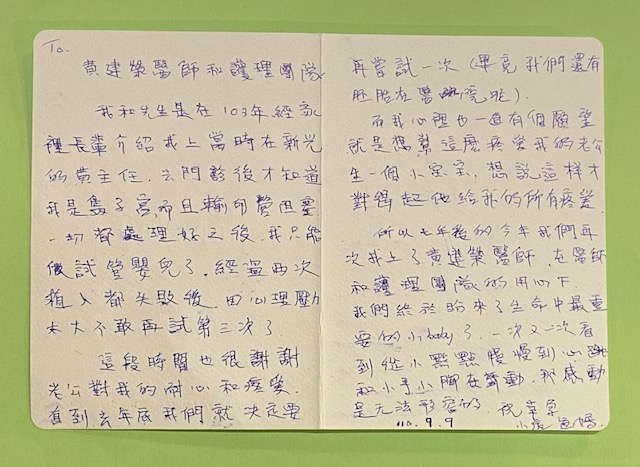 To.
黃建榮醫師和護理團隊
我和先生是在103年經家
裡長輩介紹找上當時在新光
的黃主任.去門診後才知道
我是隻子宮而且輸卵管阻塞
一切都處理好之後.我只能
做試管嬰兒了.經過兩次
植入都失敗後 因心理壓力
太大不敢再試第三次了
這段時間也很謝謝
老公對我的耐心和疼愛.
直到去年底我們就決定要
再嘗試一次(畢竟我們還有
胚胎在醫院呢).
而我心裡也一直有個願望
就是想幫這麼疼愛我的老公
生一個小寶寶,想說這樣才
對得起他給我的所有疼愛.
所以七年後的今年我們再
次找上了黃建榮醫師.在醫師
和護理團隊的用心下.
我們終於盼來了生命中最重
要的小baby了.一次又一次看
到從小點點慢慢到心跳
和小手小腳在舞動.那感動
是無法形容的.祝幸孕
110.9.9 小 媽.